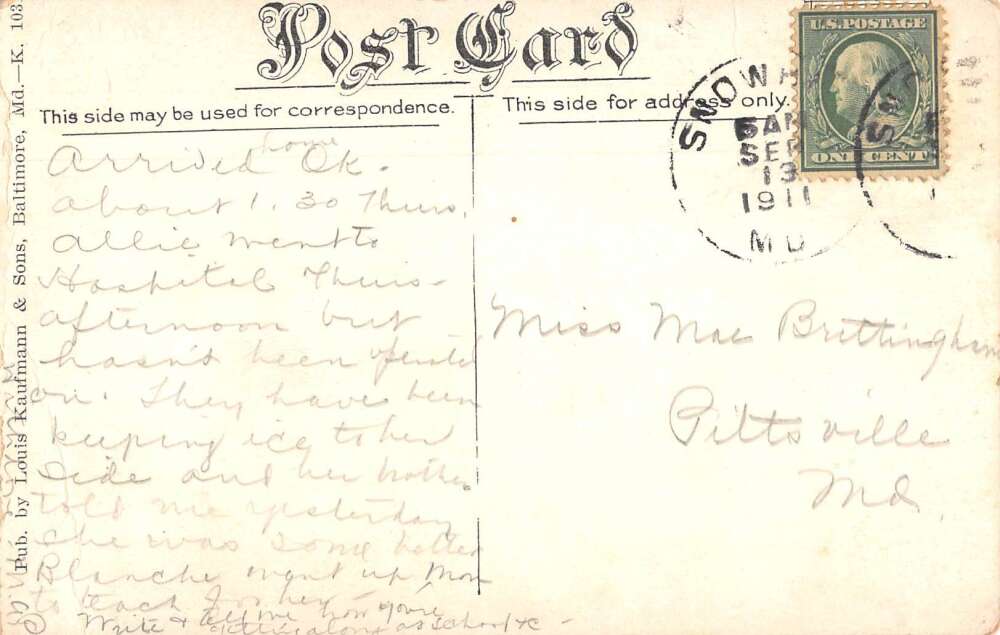 Post Card
This side may be used for correspondence.
This side for address only.
Pub. by Louis Kaufmann & Sons, Baltimore, Md.—K. 103
U.S. POSTAGE
ONE CENT
SNOW H
6 AM
SEP
13
1911
MD
SNO
Arrived home Ok.
about 1.30 Thurs.
Allie went to
Hospital Thurs-
afternoon but
hasn't been operated
on. They have been
keeping ice to her
side and her brother
told me yesterday
she was some better
Blanche went up Mon
to teach for her.
Write & tell me how you're
getting along at school &c -
Miss Mae Brittingham
Pittsville
Md.